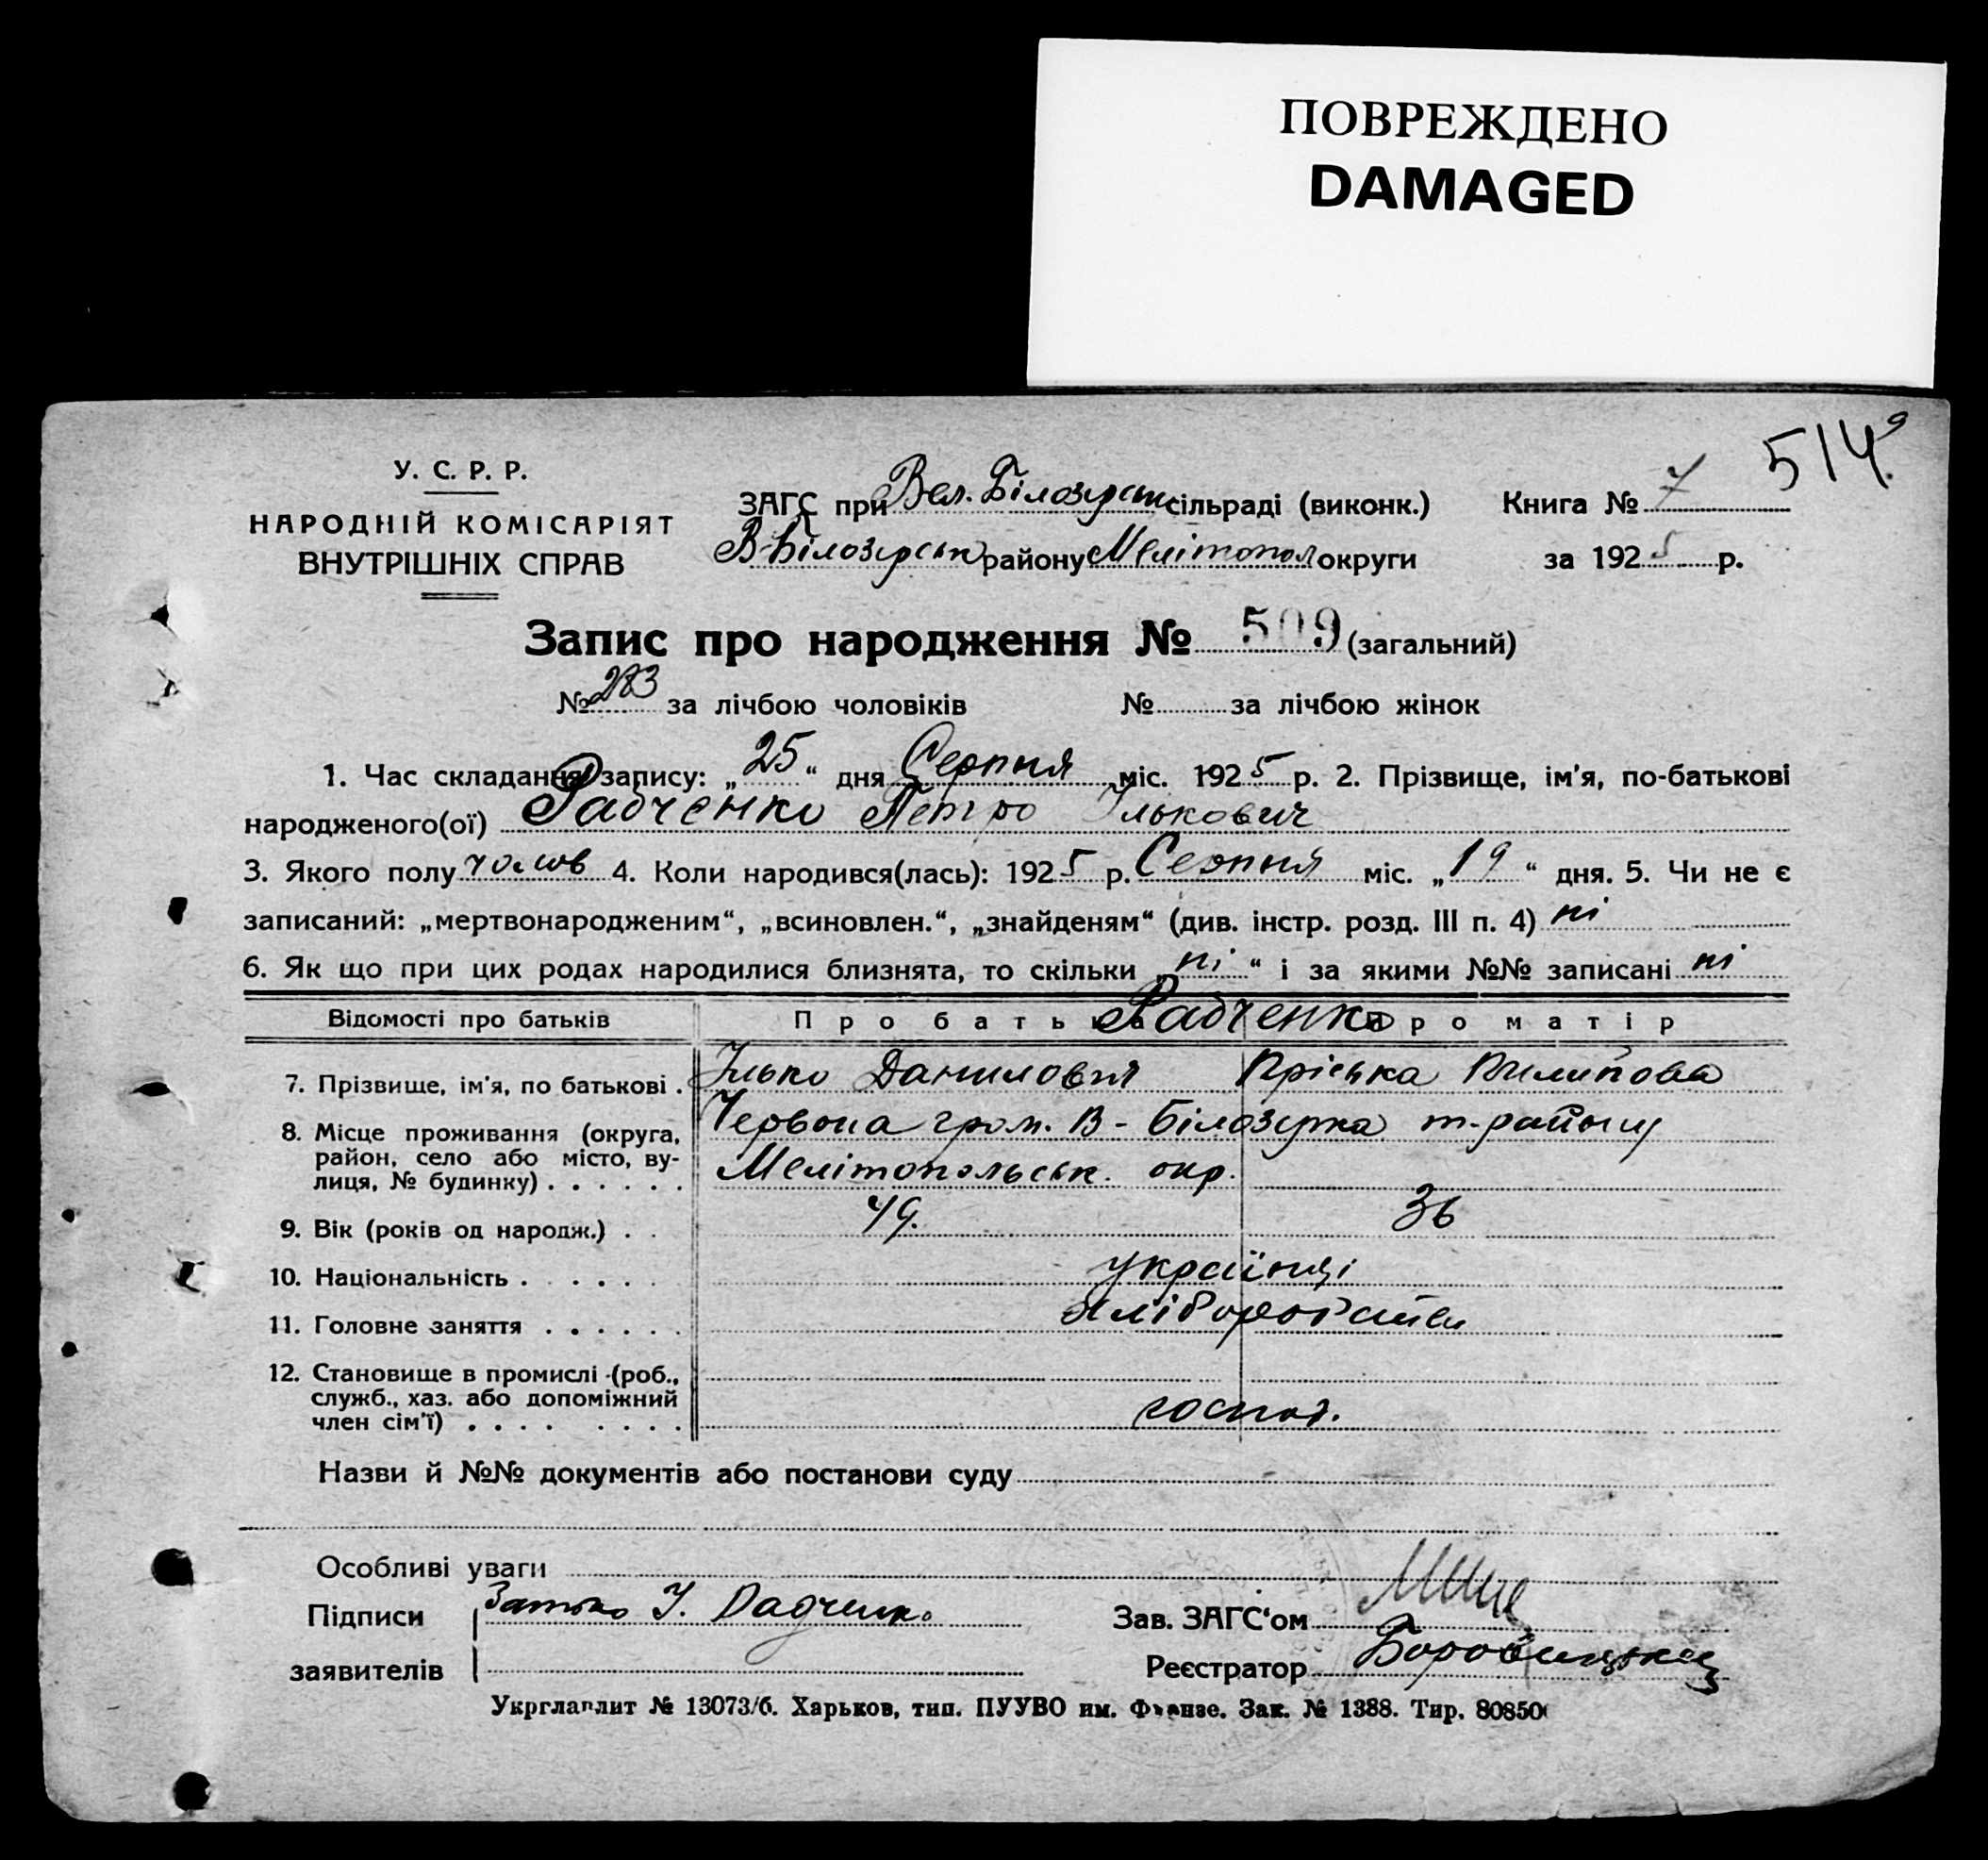 ПОВРЕЖДЕНО
DAMAGED
514
У. С. Р. Р.
НАРОДНІЙ КОМІСАРІЯТ
ВНУТРІШНІХ СПРАВ
ЗАГС при Вел. Білозірськ сільраді (виконк.) Книга № 7
В-Білозірськ району Мелітопол округи за 1925 р.
Запис про народження № 509 (загальний)
№ 283 за лічбою чоловіків № за лічбою жінок
1. Час складання запису: „25“ дня Серпня міс. 1925 р. 2. Прізвище, ім'я, по-батькові
народженого(ої) Радченко Петро Ількович
3. Якого полу чолов 4. Коли народився(лась): 1925 р. Серпня міс. „19“ дня. 5. Чи не є
записаний: „мертвонародженим“, „всиновлен.“, „знайденям“ (див. інстр. розд. III п. 4) ні
6. Як що при цих родах народилися близнята, то скільки „ні“ і за якими №№ записані ні
Відомості про батьків Про батька Про матір
Радченко
7. Прізвище, ім'я, по батькові . Ілько Данилович Пріська Пилипова
8. Місце проживання (округа, Червона гром. В-Білозірка т-району
район, село або місто, ву-
лиця, № будинку) . . . . . . Мелітопольськ. окр.
9. Вік (років од народж.) . . 49. 36
10. Національність . . . . . . українці
11. Головне заняття . . . . . . хліборобство
12. Становище в промислі (роб.,
служб., хаз. або допоміжний
член сім'ї) . . . . . . . . господ.
Назви й №№ документів або постанови суду
Особливі уваги
Підписи Батько І. Радченко Зав. ЗАГС'ом
заявителів Реєстратор
Укрглавлит № 13073/б. Харьков, тип. ПУУВО им. Фрунзе. Зак. № 1388. Тир. 80850